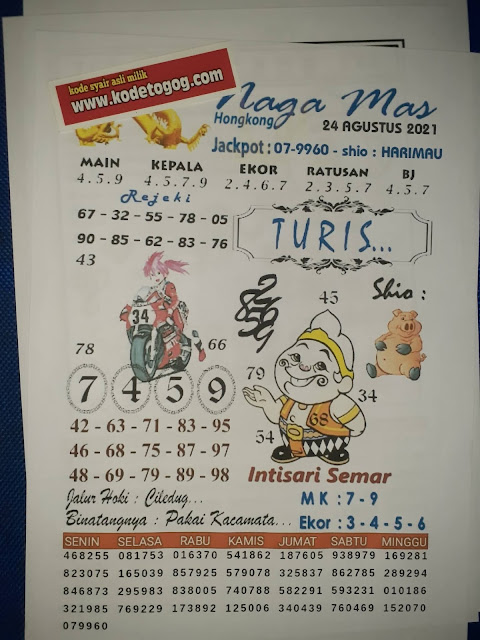 kode syair asli milik
www.kodetogog.com
Naga Mas
Hongkong
24 AGUSTUS 2021
Jackpot : 07-9960 - shio : HARIMAU
MAIN KEPALA EKOR RATUSAN BJ
4.5.9 4.5.7.9 2.4.6.7 2.3.5.7 4.5.7
Rejeki
67 - 32 - 55 - 78 - 05
90 - 85 - 62 - 83 - 76
TURIS...
43
Shio :
45
34
78
66
7 4 5 9
79
34
68
54
42 - 63 - 71 - 83 - 95
46 - 68 - 75 - 87 - 97
48 - 69 - 79 - 89 - 98
Intisari Semar
Jalur Hoki : Ciledug...
MK : 7 - 9
Binatangnya : Pakai Kacamata...
Ekor : 3 - 4 - 5 - 6
SENIN SELASA RABU KAMIS JUMAT SABTU MINGGU
468255 081753 016370 541862 187605 938979 169281
823075 165039 857925 579078 325837 862785 289294
846873 295983 838005 740788 582291 593231 010186
321985 769229 173892 125006 340439 760469 152070
079960